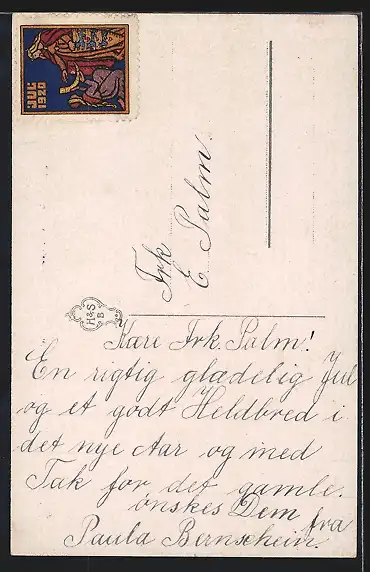 JUL
1920
Frk
E. Palm.
H&S
B
Kære Frk. Palm!
En rigtig glædelig Jul
og et godt Heldbred i
det nye Aar og med
Tak for det gamle.
ønskes Dem fra
Paula Bernschein.